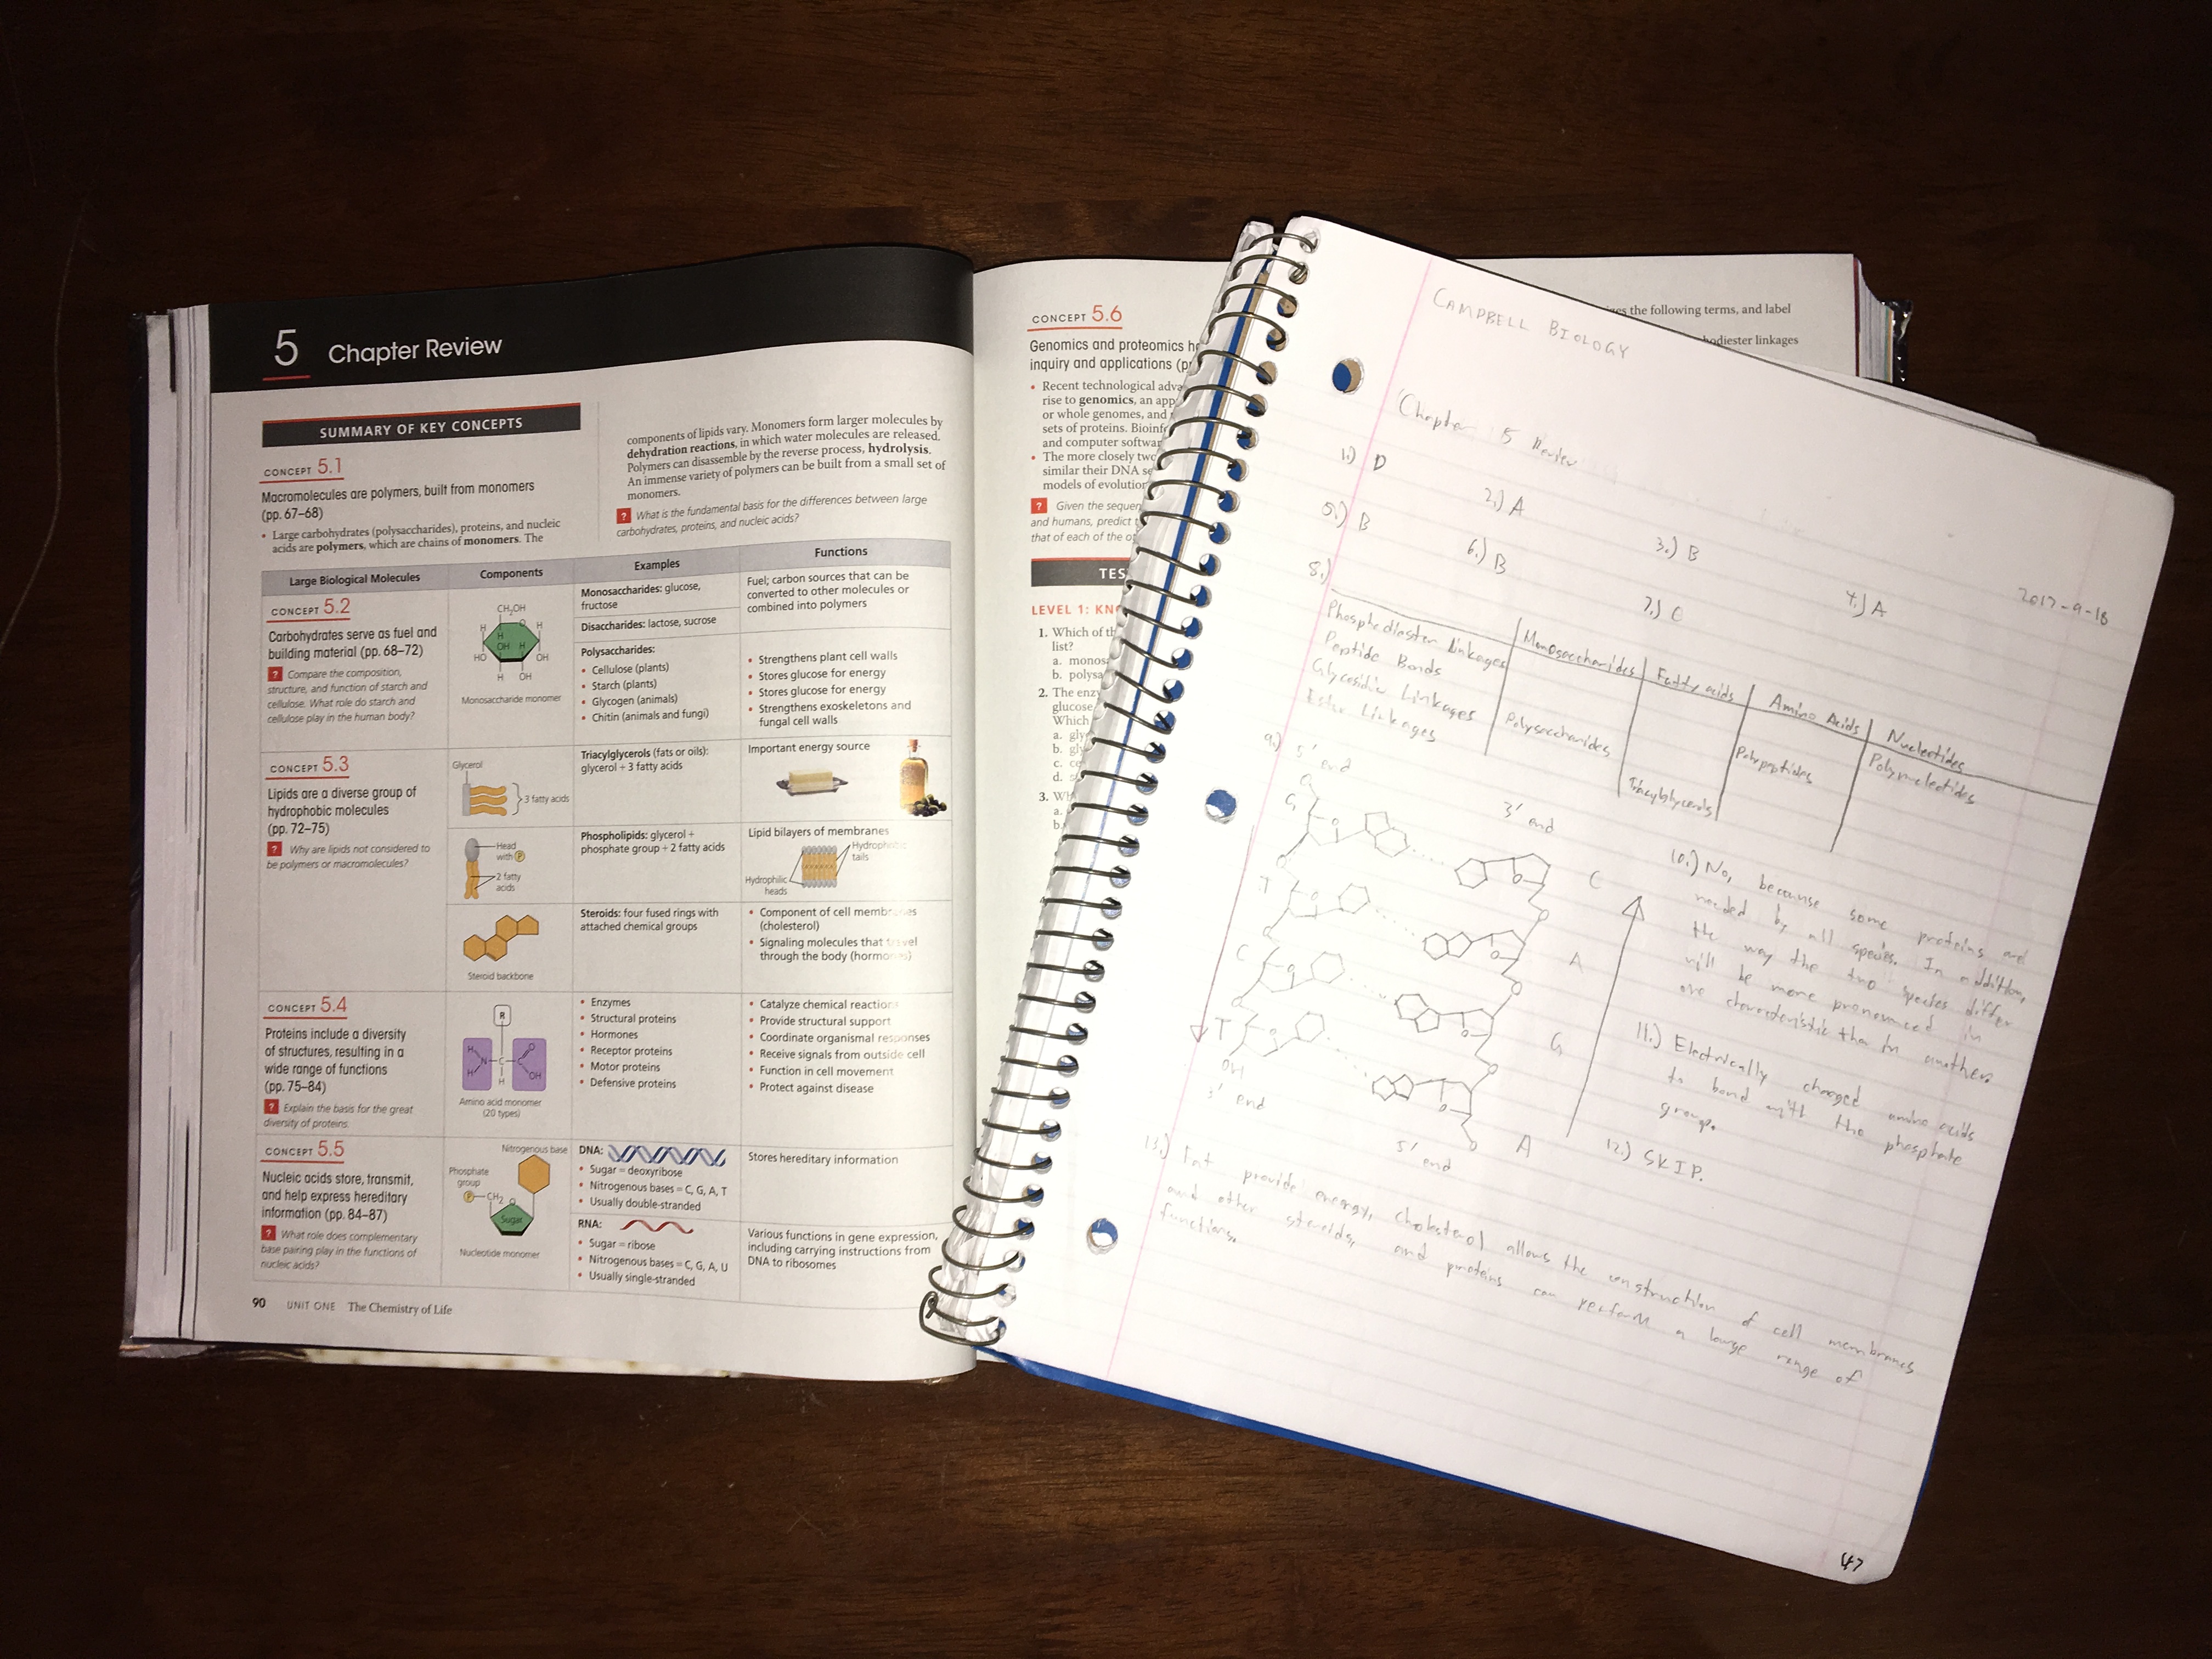 5 Chapter Review
SUMMARY OF KEY CONCEPTS
CONCEPT 5.1
Macromolecules are polymers, built from monomers
(pp. 67–68)
• Large carbohydrates (polysaccharides), proteins, and nucleic
acids are polymers, which are chains of monomers. The
components of lipids vary. Monomers form larger molecules by
dehydration reactions, in which water molecules are released.
Polymers can disassemble by the reverse process, hydrolysis.
An immense variety of polymers can be built from a small set of
monomers.
? What is the fundamental basis for the differences between large
carbohydrates, proteins, and nucleic acids?
Large Biological Molecules Components Examples Functions
CONCEPT 5.2
Carbohydrates serve as fuel and
building material (pp. 68–72)
? Compare the composition,
structure, and function of starch and
cellulose. What role do starch and
cellulose play in the human body?
CH₂OH
H O H
H
OH H
HO OH
H OH
Monosaccharide monomer
Monosaccharides: glucose,
fructose
Disaccharides: lactose, sucrose
Fuel; carbon sources that can be
converted to other molecules or
combined into polymers
Polysaccharides:
• Cellulose (plants)
• Starch (plants)
• Glycogen (animals)
• Chitin (animals and fungi)
• Strengthens plant cell walls
• Stores glucose for energy
• Stores glucose for energy
• Strengthens exoskeletons and
fungal cell walls
CONCEPT 5.3
Lipids are a diverse group of
hydrophobic molecules
(pp. 72–75)
? Why are lipids not considered to
be polymers or macromolecules?
Glycerol
3 fatty acids
Triacylglycerols (fats or oils):
glycerol + 3 fatty acids
Important energy source
Head
with P
2 fatty
acids
Phospholipids: glycerol +
phosphate group + 2 fatty acids
Lipid bilayers of membranes
Hydrophobic
tails
Hydrophilic
heads
Steroid backbone
Steroids: four fused rings with
attached chemical groups
• Component of cell membranes
(cholesterol)
• Signaling molecules that travel
through the body (hormones)
CONCEPT 5.4
Proteins include a diversity
of structures, resulting in a
wide range of functions
(pp. 75–84)
? Explain the basis for the great
diversity of proteins.
R
H O
N C C
H H OH
Amino acid monomer
(20 types)
• Enzymes
• Structural proteins
• Hormones
• Receptor proteins
• Motor proteins
• Defensive proteins
• Catalyze chemical reactions
• Provide structural support
• Coordinate organismal responses
• Receive signals from outside cell
• Function in cell movement
• Protect against disease
CONCEPT 5.5
Nucleic acids store, transmit,
and help express hereditary
information (pp. 84–87)
? What role does complementary
base pairing play in the functions of
nucleic acids?
Nitrogenous base
Phosphate
group
P CH₂ O
Sugar
Nucleotide monomer
DNA:
• Sugar = deoxyribose
• Nitrogenous bases = C, G, A, T
• Usually double-stranded
Stores hereditary information
RNA:
• Sugar = ribose
• Nitrogenous bases = C, G, A, U
• Usually single-stranded
Various functions in gene expression,
including carrying instructions from
DNA to ribosomes
90 UNIT ONE The Chemistry of Life
CONCEPT 5.6
Genomics and proteomics
inquiry and applications
• Recent technological
rise to genomics, an
or whole genomes, and
sets of proteins.
and computer
• The more closely two
similar their DNA
models of
? Given the
and humans, predict
that of each of the
TES
LEVEL 1:
1. Which of
list?
a.
b.
2. The
glucose
Which
a.
b.
c.
d.
3.
a.
b.
the following terms, and label
linkages
CAMPBELL BIOLOGY
Chapter 5 Review
2017-9-18
1.) D 2.) A 3.) B 4.) A
5.) B 6.) B 7.) C
8.)
Monosaccharides Fatty acids Amino Acids Nucleotides
Phosphediester Linkages Polynucleotides
Peptide Bonds Polypeptides
Glycosidic Linkages Polysaccharides
Ester Linkages Triacylglycerols
9.) 5' end 3' end
G C
T A
C G
T A
OH
3' end 5' end
10.) No, because some proteins are
needed by all species. In addition,
the way the two species differ
will be more pronounced in
one characteristic than in another.
11.) Electrically charged amino acids
to bond with the phosphate
group.
12.) SKIP.
13.) Fat provide energy, cholesterol allows the construction of cell membranes
and other steroids, and proteins can perform a large range of
functions.
47